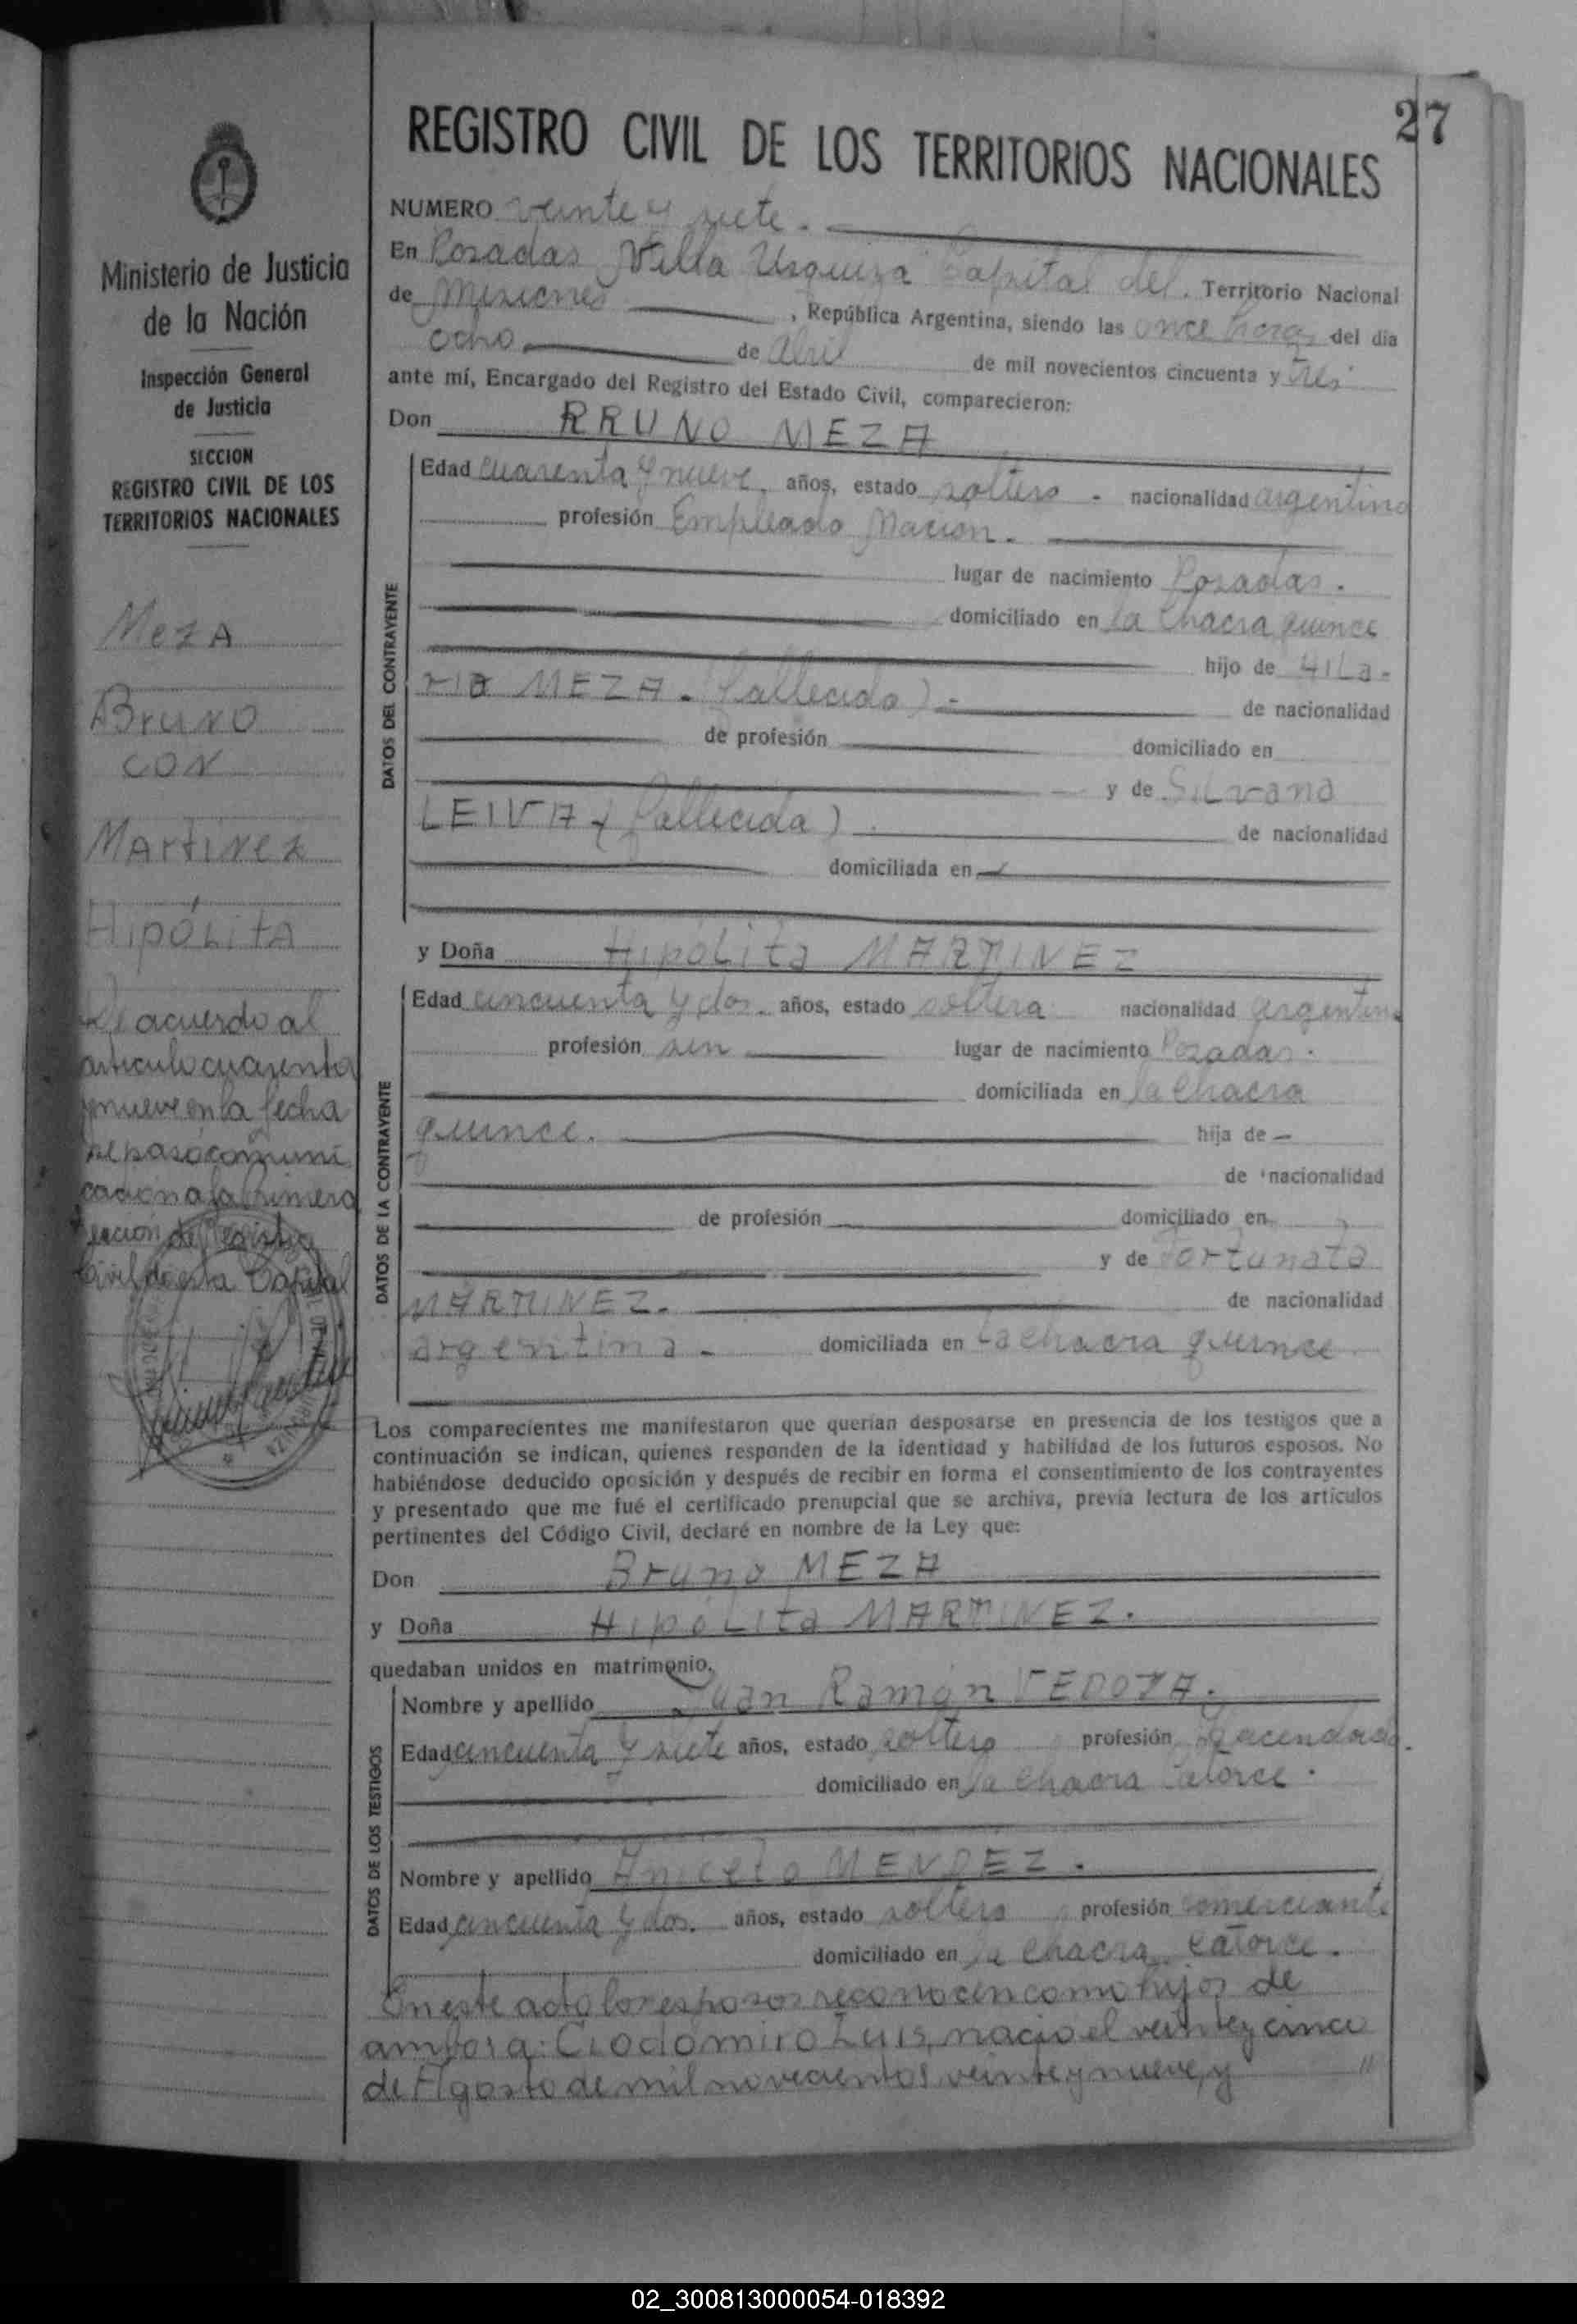 27
REGISTRO CIVIL DE LOS TERRITORIOS NACIONALES
Ministerio de Justicia
de la Nación
Inspección General
de Justicia
SECCION
REGISTRO CIVIL DE LOS
TERRITORIOS NACIONALES
Meza
Bruno
CON
Martinez
Hipólita
De acuerdo al
articulo cuarenta
y nueve en la fecha
se pasó comuni
cación a la Primera
Sección de Registro
Civil de esta Capital
NUMERO veinte y siete.
En Posadas Villa Urquiza Capital del. Territorio Nacional
de Misiones, República Argentina, siendo las once horas del dia
ocho de Abril de mil novecientos cincuenta y tres
ante mí, Encargado del Registro del Estado Civil, comparecieron:
Don BRUNO MEZA
DATOS DEL CONTRAYENTE
Edad cuarenta y nueve. años, estado soltero - nacionalidad argentino
profesión Empleado Nacion.
lugar de nacimiento Posadas.
domiciliado en la Chacra quince
hijo de HiLa-
rio MEZA - (fallecido) -
de nacionalidad
de profesión domiciliado en
y de SiLvana
LEIVA - (fallecida)
de nacionalidad
domiciliada en
y Doña HipóLita MARTINEZ
DATOS DE LA CONTRAYENTE
Edad cincuenta y dos. años, estado soltera nacionalidad argentina
profesión sin lugar de nacimiento Posadas.
domiciliada en la Chacra
quince. hija de -
de nacionalidad
de profesión domiciliado en
y de Fortunata
MARTINEZ. de nacionalidad
argentina - domiciliada en La chacra quince
Los comparecientes me manifestaron que querían desposarse en presencia de los testigos que a
continuación se indican, quienes responden de la identidad y habilidad de los futuros esposos. No
habiéndose deducido oposición y después de recibir en forma el consentimiento de los contrayentes
y presentado que me fué el certificado prenupcial que se archiva, previa lectura de los artículos
pertinentes del Código Civil, declaré en nombre de la Ley que:
Don Bruno MEZA
y Doña HipóLita MARTINEZ.
quedaban unidos en matrimonio.
DATOS DE LOS TESTIGOS
Nombre y apellido Juan Ramón VEDOYA.
Edad cincuenta y siete años, estado soltero profesión Hacendado.
domiciliado en la Chacra Catorce.
Nombre y apellido Aniceto MENDEZ.
Edad cincuenta y dos. años, estado soltero profesión comerciante
domiciliado en la Chacra Catorce.
En este acto los esposos reconocen como hijos de
ambos a: Clodomiro Luis, nacio el veinte y cinco
de Agosto de mil novecientos veinte y nueve, y "
02_300813000054-018392